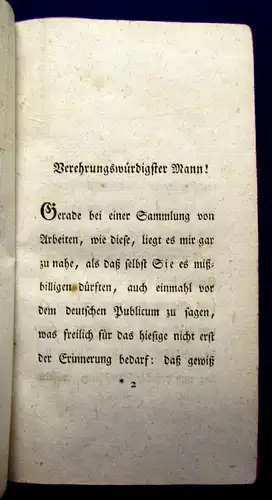 Verehrungswürdigster Mann!
Gerade bei einer Sammlung von
Arbeiten, wie diese, liegt es mir gar
zu nahe, als daß selbst Sie es miß-
billigen dürften, auch einmahl vor
dem deutschen Publicum zu sagen,
was freilich für das hiesige nicht erst
der Erinnerung bedarf: daß gewiß
* 2